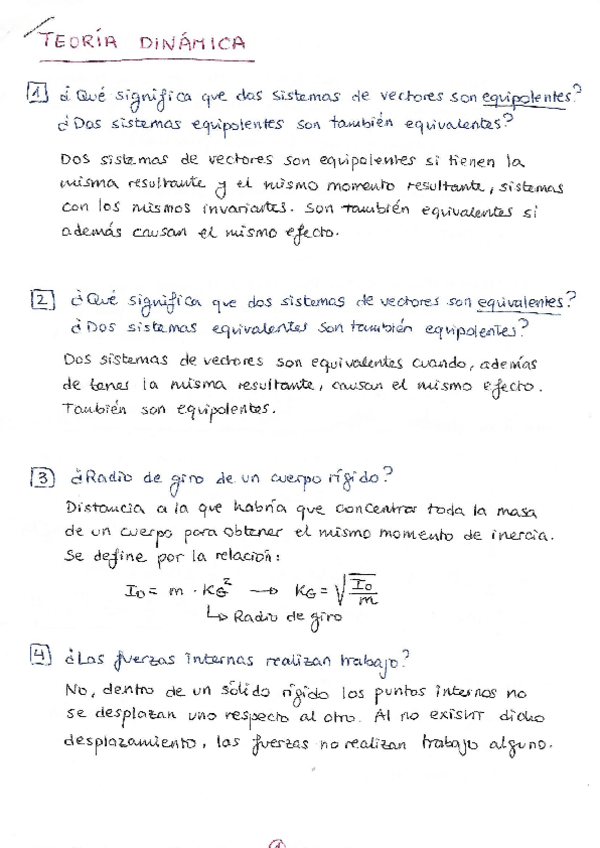 TEORÍA DINÁMICA
1 ¿Qué significa que dos sistemas de vectores son equipolentes?
¿Dos sistemas equipolentes son también equivalentes?
Dos sistemas de vectores son equipolentes si tienen la
misma resultante y el mismo momento resultante, sistemas
con los mismos invariantes. Son también equivalentes si
además causan el mismo efecto.
2 ¿Qué significa que dos sistemas de vectores son equivalentes?
¿Dos sistemas equivalentes son también equipolentes?
Dos sistemas de vectores son equivalentes cuando, además
de tener la misma resultante, causan el mismo efecto.
También son equipolentes.
3 ¿Radio de giro de un cuerpo rígido?
Distancia a la que habría que concentrar toda la masa
de un cuerpo para obtener el mismo momento de inercia.
Se define por la relación:
I₀ = m · K_G² → K_G = √(I₀/m)
↳ Radio de giro
4 ¿Las fuerzas internas realizan trabajo?
No, dentro de un sólido rígido los puntos internos no
se desplazan uno respecto al otro. Al no existir dicho
desplazamiento, las fuerzas no realizan trabajo alguno.